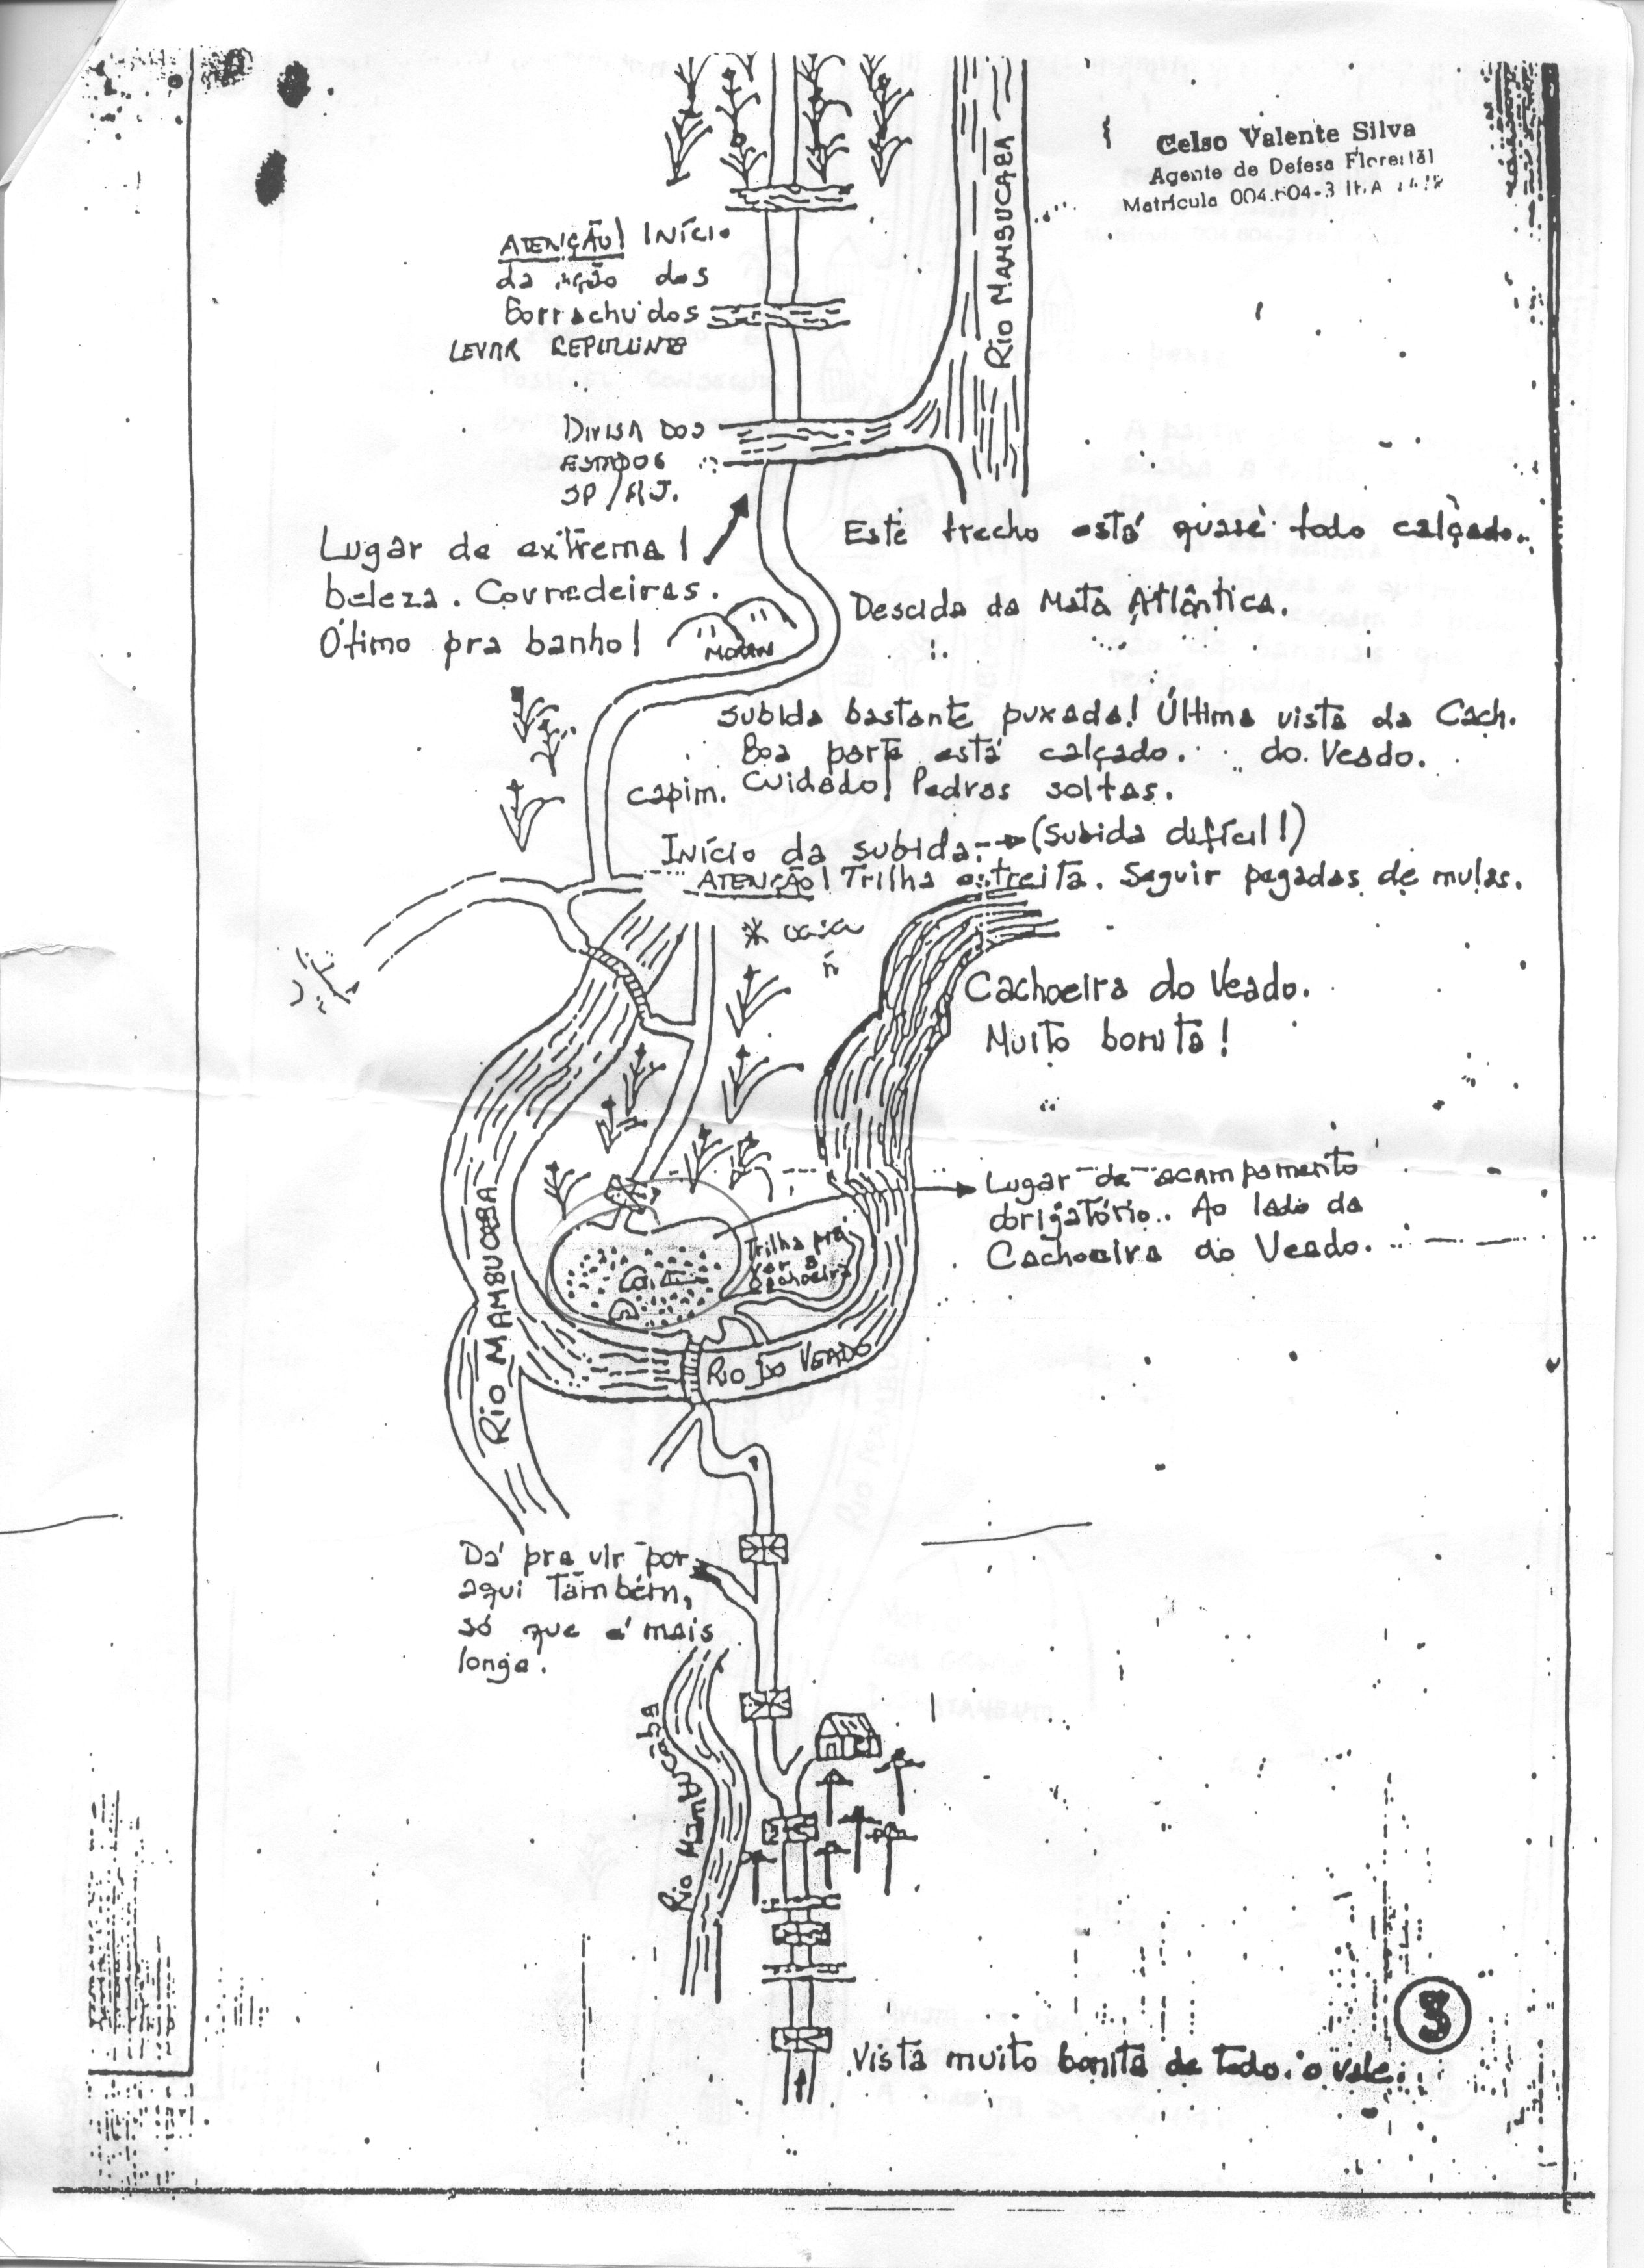 Celso Valente Silva
Agente de Defesa Florestal
Matrícula 004.604-3
RIO MAMBUCABA
ATENÇÃO! INÍCIO
da ação dos
borrachudos
LEVAR REPELENTE
DIVISA DOS
ESTADOS
SP/RJ.
Lugar de extrema
beleza. Corredeiras.
Ótimo pra banho!
Este trecho está quase todo calçado.
Descida da Mata Atlântica.
MORRO
Subida bastante puxada! Última vista da Cach.
Boa parte está calçado. do Veado.
capim. Cuidado! Pedras soltas.
INÍCIO da subida. (Subida difícil!)
ATENÇÃO! Trilha estreita. Seguir pegadas de mulas.
* casa
Cachoeira do Veado.
Muito bonita!
Lugar de acampamento
obrigatório. Ao lado da
Cachoeira do Veado.
Trilha pra
ver a
cachoeira
RIO MAMBUCABA
RIO MAMBUCABA
RIO DO VEADO
Dá pra vir por
aqui também,
só que é mais
longe.
Rio Mambucaba
3
Vista muito bonita de todo o vale.